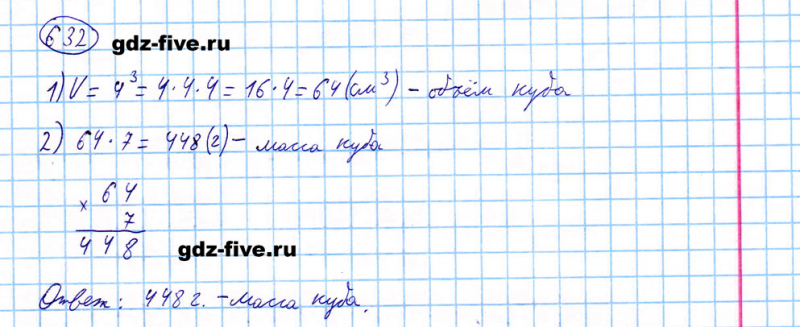 632 gdz-five.ru
1) V = 4³ = 4·4·4 = 16·4 = 64 (см³) – объём куба
2) 64·7 = 448 (г) – масса куба
64
× 7
448 gdz-five.ru
Ответ: 448 г. – масса куба.